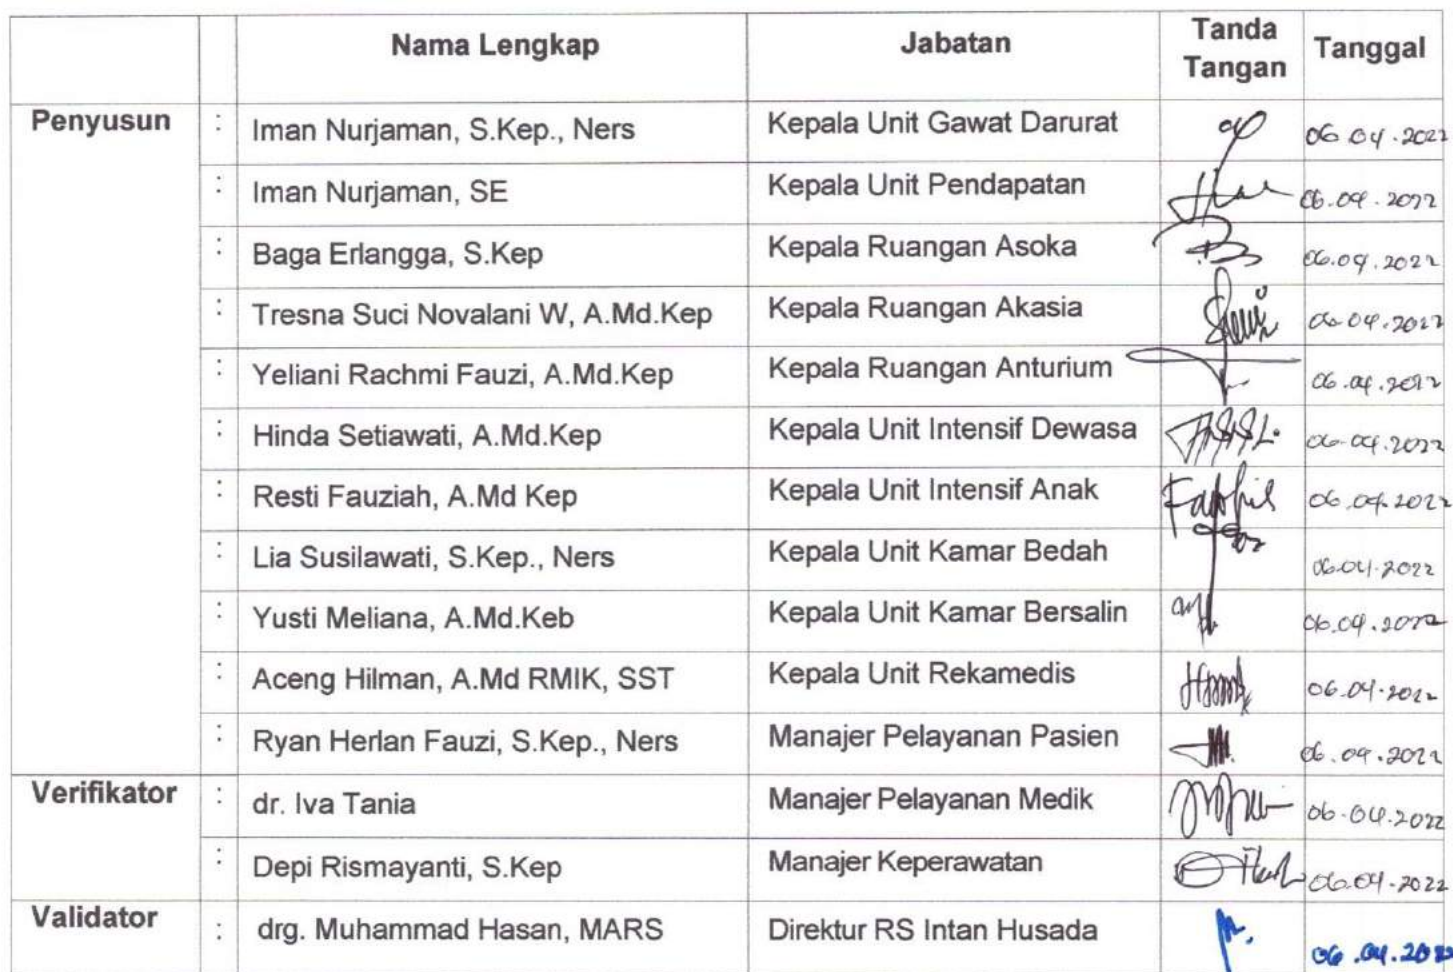 Nama Lengkap Jabatan Tanda Tangan Tanggal
Penyusun : Iman Nurjaman, S.Kep., Ners Kepala Unit Gawat Darurat 06.04.2022
: Iman Nurjaman, SE Kepala Unit Pendapatan 06.04.2022
: Baga Erlangga, S.Kep Kepala Ruangan Asoka 06.04.2022
: Tresna Suci Novalani W, A.Md.Kep Kepala Ruangan Akasia 06.04.2022
: Yeliani Rachmi Fauzi, A.Md.Kep Kepala Ruangan Anturium 06.04.2022
: Hinda Setiawati, A.Md.Kep Kepala Unit Intensif Dewasa 06-04.2022
: Resti Fauziah, A.Md Kep Kepala Unit Intensif Anak 06.04.2022
: Lia Susilawati, S.Kep., Ners Kepala Unit Kamar Bedah 06.04.2022
: Yusti Meliana, A.Md.Keb Kepala Unit Kamar Bersalin 06.04.2022
: Aceng Hilman, A.Md RMIK, SST Kepala Unit Rekamedis 06.04.2022
: Ryan Herlan Fauzi, S.Kep., Ners Manajer Pelayanan Pasien 06.04.2022
Verifikator : dr. Iva Tania Manajer Pelayanan Medik 06.04.2022
: Depi Rismayanti, S.Kep Manajer Keperawatan 06.04.2022
Validator : drg. Muhammad Hasan, MARS Direktur RS Intan Husada 06.04.2022